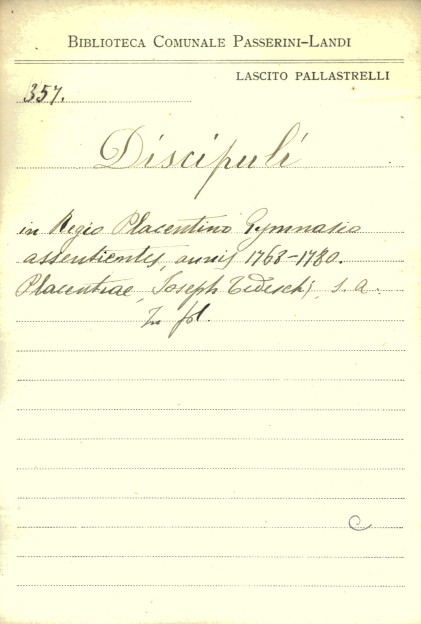 BIBLIOTECA COMUNALE PASSERINI-LANDI
LASCITO PALLASTRELLI
357.
Discipuli
in Regio Placentino Gymnasio
assentientes, annis 1768-1780.
Placentiae, Joseph Tedeschi, s. a.
In fol.
C